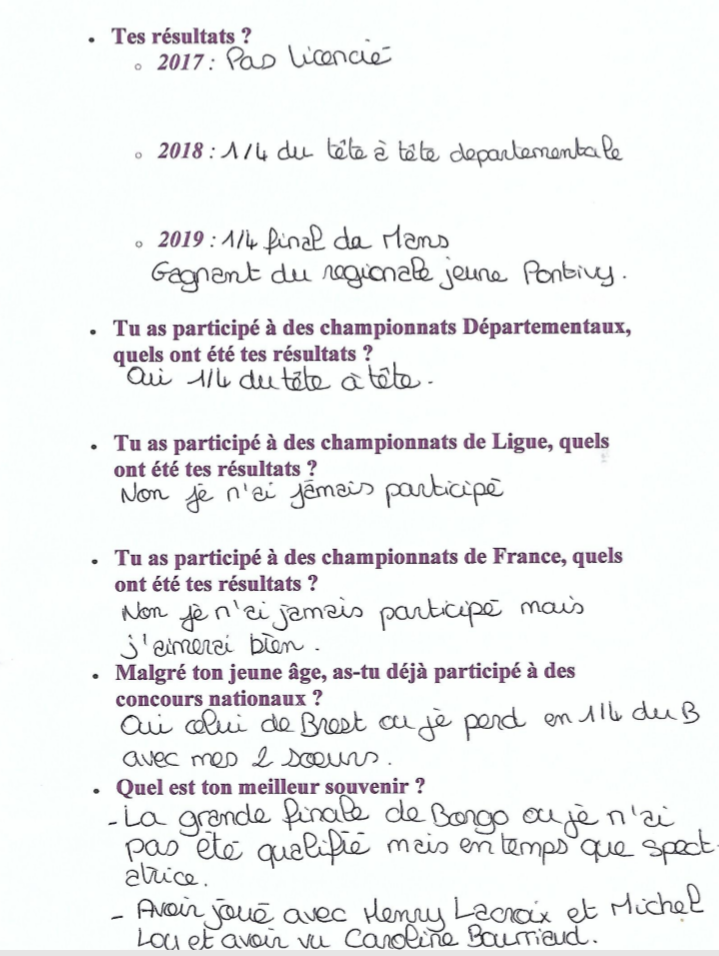 • Tes résultats ?
◦ 2017 : Pas licencié
◦ 2018 : 1/4 du tête à tête departementale
◦ 2019 : 1/4 final da Mans
Gagnant du regionale jeune Pontivy.
• Tu as participé à des championnats Départementaux,
quels ont été tes résultats ?
Oui 1/4 du tête à tête.
• Tu as participé à des championnats de Ligue, quels
ont été tes résultats ?
Non je n'ai jamais participé
• Tu as participé à des championnats de France, quels
ont été tes résultats ?
Non je n'ai jamais participé mais
j'aimerai bien.
• Malgré ton jeune âge, as-tu déjà participé à des
concours nationaux ?
Oui celui de Brest ou je perd en 1/4 du B
avec mes 2 sœurs.
• Quel est ton meilleur souvenir ?
- La grande finale de Bongo ou je n'ai
pas été qualifié mais en temps que spect-
atrice.
- Avoir joué avec Henry Lacroix et Michel
Lou et avoir vu Caroline Bourriaud.